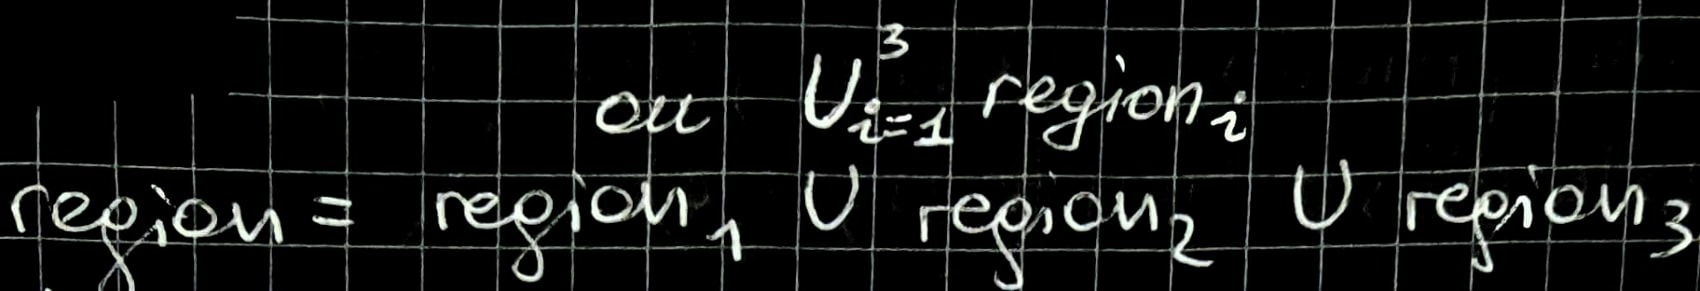 ou ∪³ᵢ₌₁ regionᵢ
region = region₁ ∪ region₂ ∪ region₃